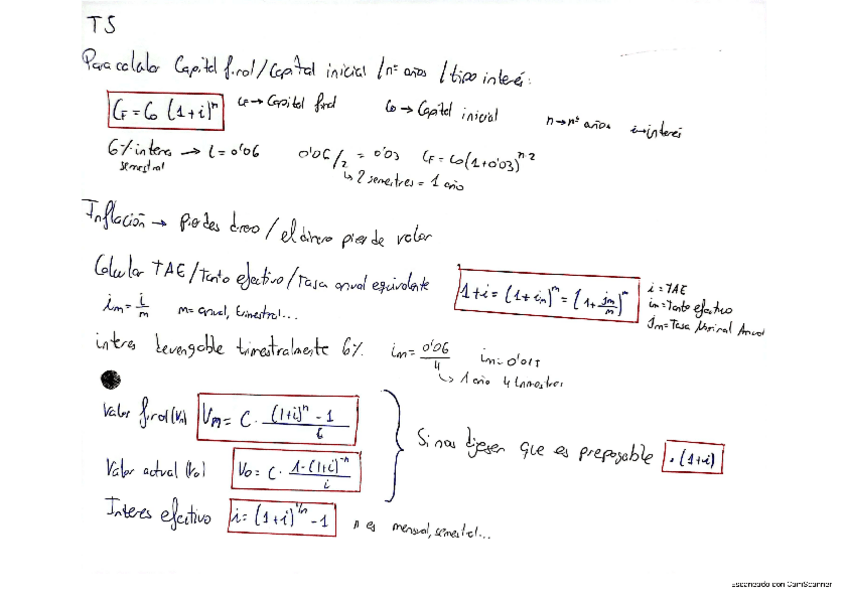 TS
Para calcular Capital final / Capital inicial / nº años / tipo interés:
CF = Co (1+i)^n CF → Capital final Co → Capital inicial n → nº años i → interés
6% interés → i = 0'06 0'06/2 = 0'03 CF = Co (1+0'03)^n·2
semestral ↳ 2 semestres = 1 año
Inflación → pierdes dinero / el dinero pierde valor
Calcular TAE / Tanto efectivo / Tasa anual equivalente
1+i = (1+im)^m = (1+ jm/m)^m
i = TAE
im = Tanto efectivo
Jm = Tasa Nominal Anual
im = i/m m = anual, trimestral...
interés devengable trimestralmente 6% im = 0'06/4 im = 0'015
↳ 1 año 4 trimestres
Valor final (Vn) Vn = C · (1+i)^n - 1 / i
Si nos dijesen que es prepagable · (1+i)
Valor actual (Vo) Vo = C · 1-(1+i)^-n / i
Interes efectivo i = (1+i)^1/n - 1 n es mensual, semestral...
Escaneado con CamScanner